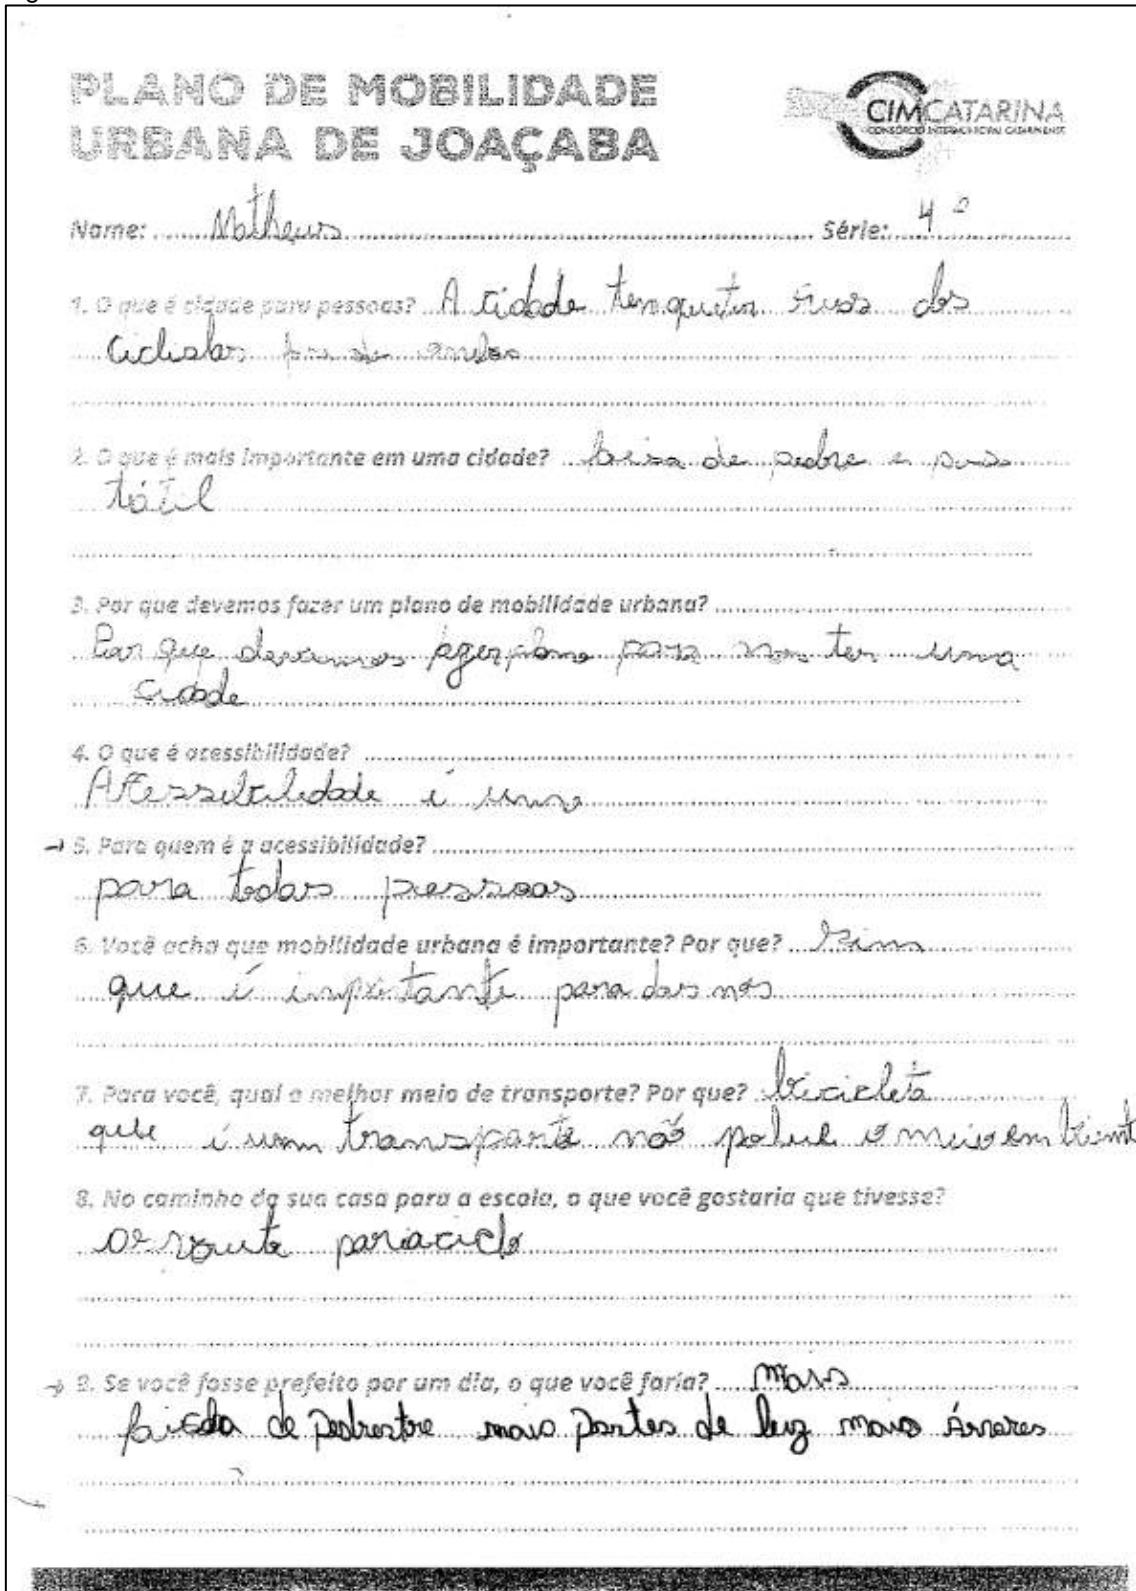 PLANO DE MOBILIDADE
URBANA DE JOAÇABA
CIMCATARINA
CONSÓRCIO INTERMUNICIPAL CATARINENSE
Nome: Matheus Série: 4º
1. O que é cidade para pessoas? A cidade tenqueter ruas dos
Ciclistas
2. O que é mais importante em uma cidade? de pedre e piso
tátil
3. Por que devemos fazer um plano de mobilidade urbana?
Por que devemos plano para nos ter uma
cidade
4. O que é acessibilidade?
é uma
→ 5. Para quem é a acessibilidade?
para todas pessoas
6. Você acha que mobilidade urbana é importante? Por que? Sim
que é importante para dos nos
7. Para você, qual o melhor meio de transporte? Por que? bicicleta
que é um transporte não polue o meio embient
8. No caminho da sua casa para a escola, o que você gostaria que tivesse?
→ 9. Se você fosse prefeito por um dia, o que você faria? Mais
de Pedrestre mais Postes de luz mais Árvores